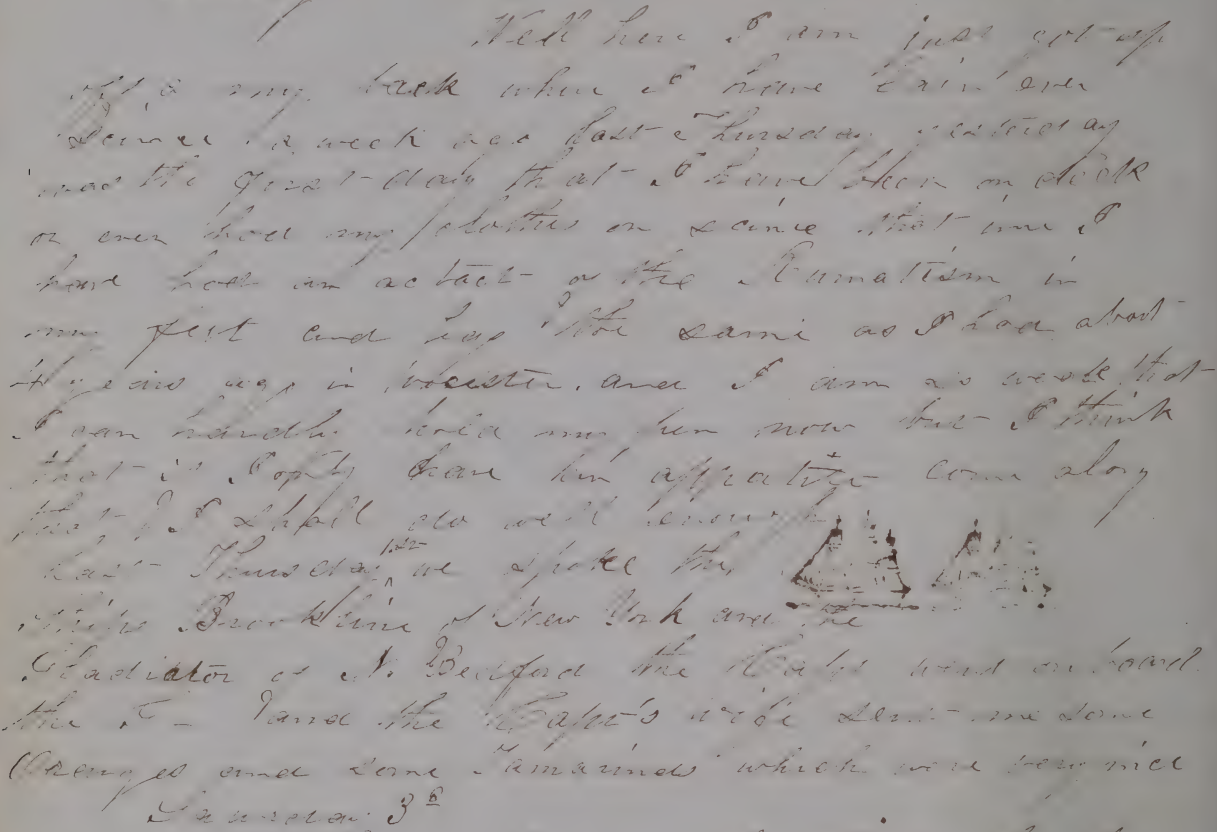 Well here I am just got up
off a my back where I have lain ever
scince a week ago last Thursday yesterday
was the first day that I have been on deck
or even had my clothes on scince that time I
have had an actact of the Rumatism in
my feet and legs the same as I had about
4 years ago in and I am so weak that
I can hardly hold my pen now but I think
that if I only have him appatite come along
that I shall do well enough
Last Thursday we spoke the
ships Brookline of New York and the
Gladiator of N. Bedford the Capt wind on board
the and the Capt's wife sent me some
Orenges and some Tamarinds which were very nice
3d